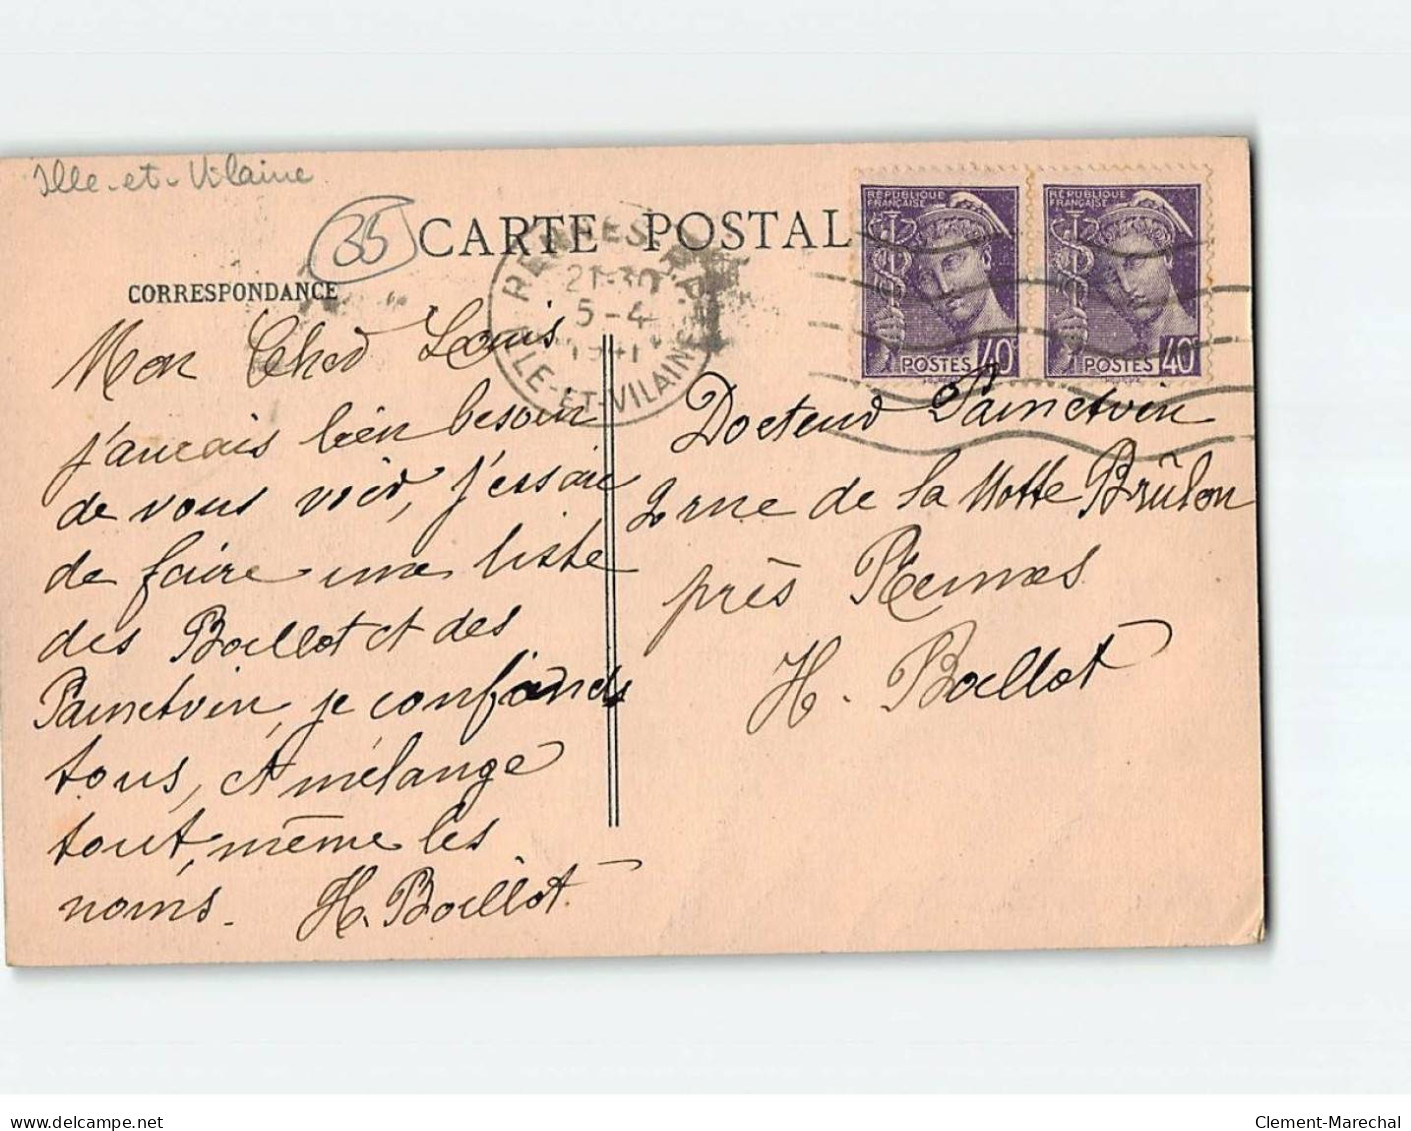 Ille-et-Vilaine
35
CARTE POSTAL
CORRESPONDANCE
RENNES R.P.
21-30
5-4
1941
ILLE-ET-VILAINE
RÉPUBLIQUE FRANÇAISE
POSTES 40
RÉPUBLIQUE FRANÇAISE
POSTES 40
Mon Cher Louis
j'aurais bien besoin
de vous voir, j'essaie
de faire une liste
des Boellot et des
Painctvin, je confonds
tous, et mélange
tout, même les
noms. H. Boellot
Docteur Painctvin
2 rue de la Motte Brûlon
près Rennes
H. Boellot
delcampe.net
Clement-Marechal